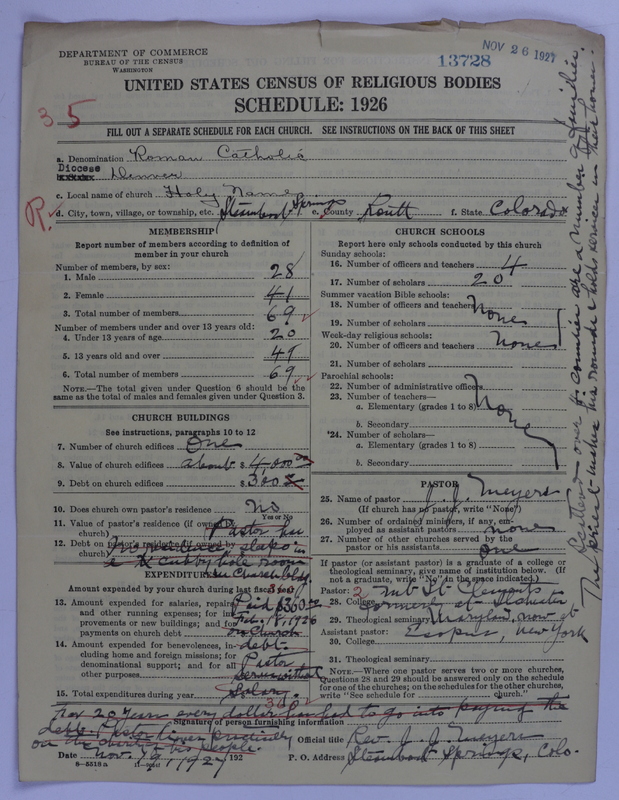 DEPARTMENT OF COMMERCE
BUREAU OF THE CENSUS
WASHINGTON
13728
NOV 26 1927
UNITED STATES CENSUS OF RELIGIOUS BODIES
SCHEDULE: 1926
35
FILL OUT A SEPARATE SCHEDULE FOR EACH CHURCH. SEE INSTRUCTIONS ON THE BACK OF THIS SHEET
a. Denomination Roman Catholic
Diocese Denver
c. Local name of church Holy Name
R.
d. City, town, village, or township, etc. Steamboat Springs e. County Routt f. State Colorado
MEMBERSHIP
Report number of members according to definition of
member in your church
Number of members, by sex:
1. Male 28
2. Female 41
3. Total number of members 69
Number of members under and over 13 years old:
4. Under 13 years of age 20
5. 13 years old and over 49
6. Total number of members 69
NOTE.—The total given under Question 6 should be
the same as the total of males and females given under Question 3.
CHURCH BUILDINGS
See instructions, paragraphs 10 to 12
7. Number of church edifices One
8. Value of church edifices about $ 4,000 00
9. Debt on church edifices $ 300
10. Does church own pastor's residence? No
Yes or No
11. Value of pastor's residence (if owned by
church) Pastor has
12. Debt on pastor's residence (if owned by
church) no residence, sleeps in
a cubbyhole room
in Church bldg.
EXPENDITURES
Amount expended by your church during last fiscal year
13. Amount expended for salaries, repairs,
and other running expenses; for im-
provements or new buildings; and for
payments on church debt Paid $360.00
1926
on Church
14. Amount expended for benevolences, in-
cluding home and foreign missions; for
denominational support; and for all
other purposes debt.
Pastor
serves without
15. Total expenditures during year Salary.
For 20 years every dollar has had to go into paying the
debts. Pastor lives practically
on the charity of his people.
Signature of person furnishing information
Date Nov. 19, 1927 192
8-5518a
CHURCH SCHOOLS
Report here only schools conducted by this church
Sunday schools:
16. Number of officers and teachers 4
17. Number of scholars 20
Summer vacation Bible schools:
18. Number of officers and teachers None
19. Number of scholars
Week-day religious schools:
20. Number of officers and teachers None
21. Number of scholars
Parochial schools:
22. Number of administrative officers None
23. Number of teachers—
a. Elementary (grades 1 to 8)
b. Secondary
24. Number of scholars—
a. Elementary (grades 1 to 8)
b. Secondary
PASTOR
25. Name of pastor J. J. Meyers
(If church has no pastor, write "None")
26. Number of ordained ministers, if any, em-
ployed as assistant pastors none
27. Number of other churches served by the
pastor or his assistants one
If pastor (or assistant pastor) is a graduate of a college or
theological seminary, give name of institution below. (If
not a graduate, write "No" in the space indicated.)
Pastor: 2
28. College Mt. St. Clements
formerly at Ilchester
29. Theological seminary Maryland, now at
Assistant pastor: Esopus, New York
30. College
31. Theological seminary
NOTE.—Where one pastor serves two or more churches,
Questions 28 and 29 should be answered only on the schedule
for one of the churches; on the schedules for the other churches,
write "See schedule for church."
Official title Rev. J. J. Meyers
P. O. Address Steamboat Springs, Colo.
Scattered over the counties are a number of families.
The priest makes his rounds & holds services in their homes.